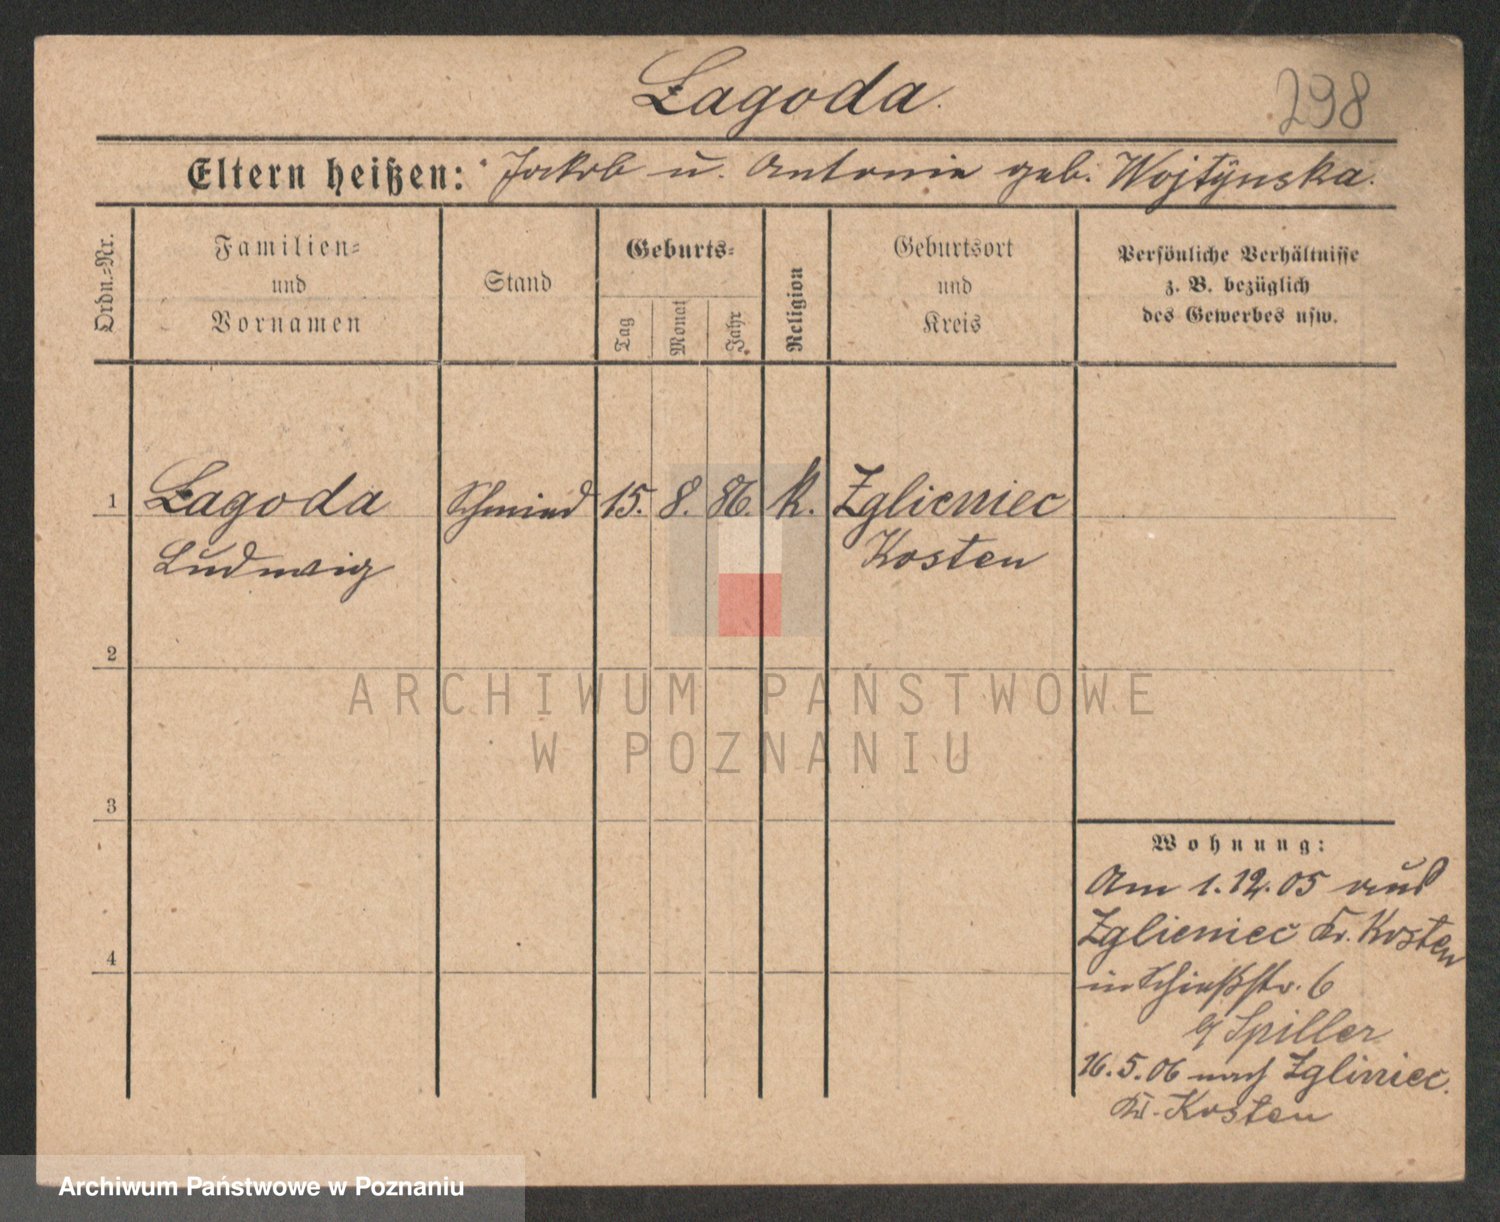 Łagoda.
298
Eltern heißen: Jakob u. Antonie geb. Wojtynska.
Ordn.=Nr.
Familien=
und
Vornamen
Stand
Geburts=
Tag
Monat
Jahr
Religion
Geburtsort
und
Kreis
Persönliche Verhältnisse
z. B. bezüglich
des Gewerbes usw.
1 Łagoda Schmied 15. 8. 86. k. Zglieniec
Ludwig Kosten
2
3
4
ARCHIWUM PAŃSTWOWE
W POZNANIU
Wohnung:
Am 1.12.05 aus
Zglieniec Kr. Kosten
in Schießstr. 6
Spiller
16.5.06 nach Zgliniec.
Kr. Kosten
Archiwum Państwowe w Poznaniu